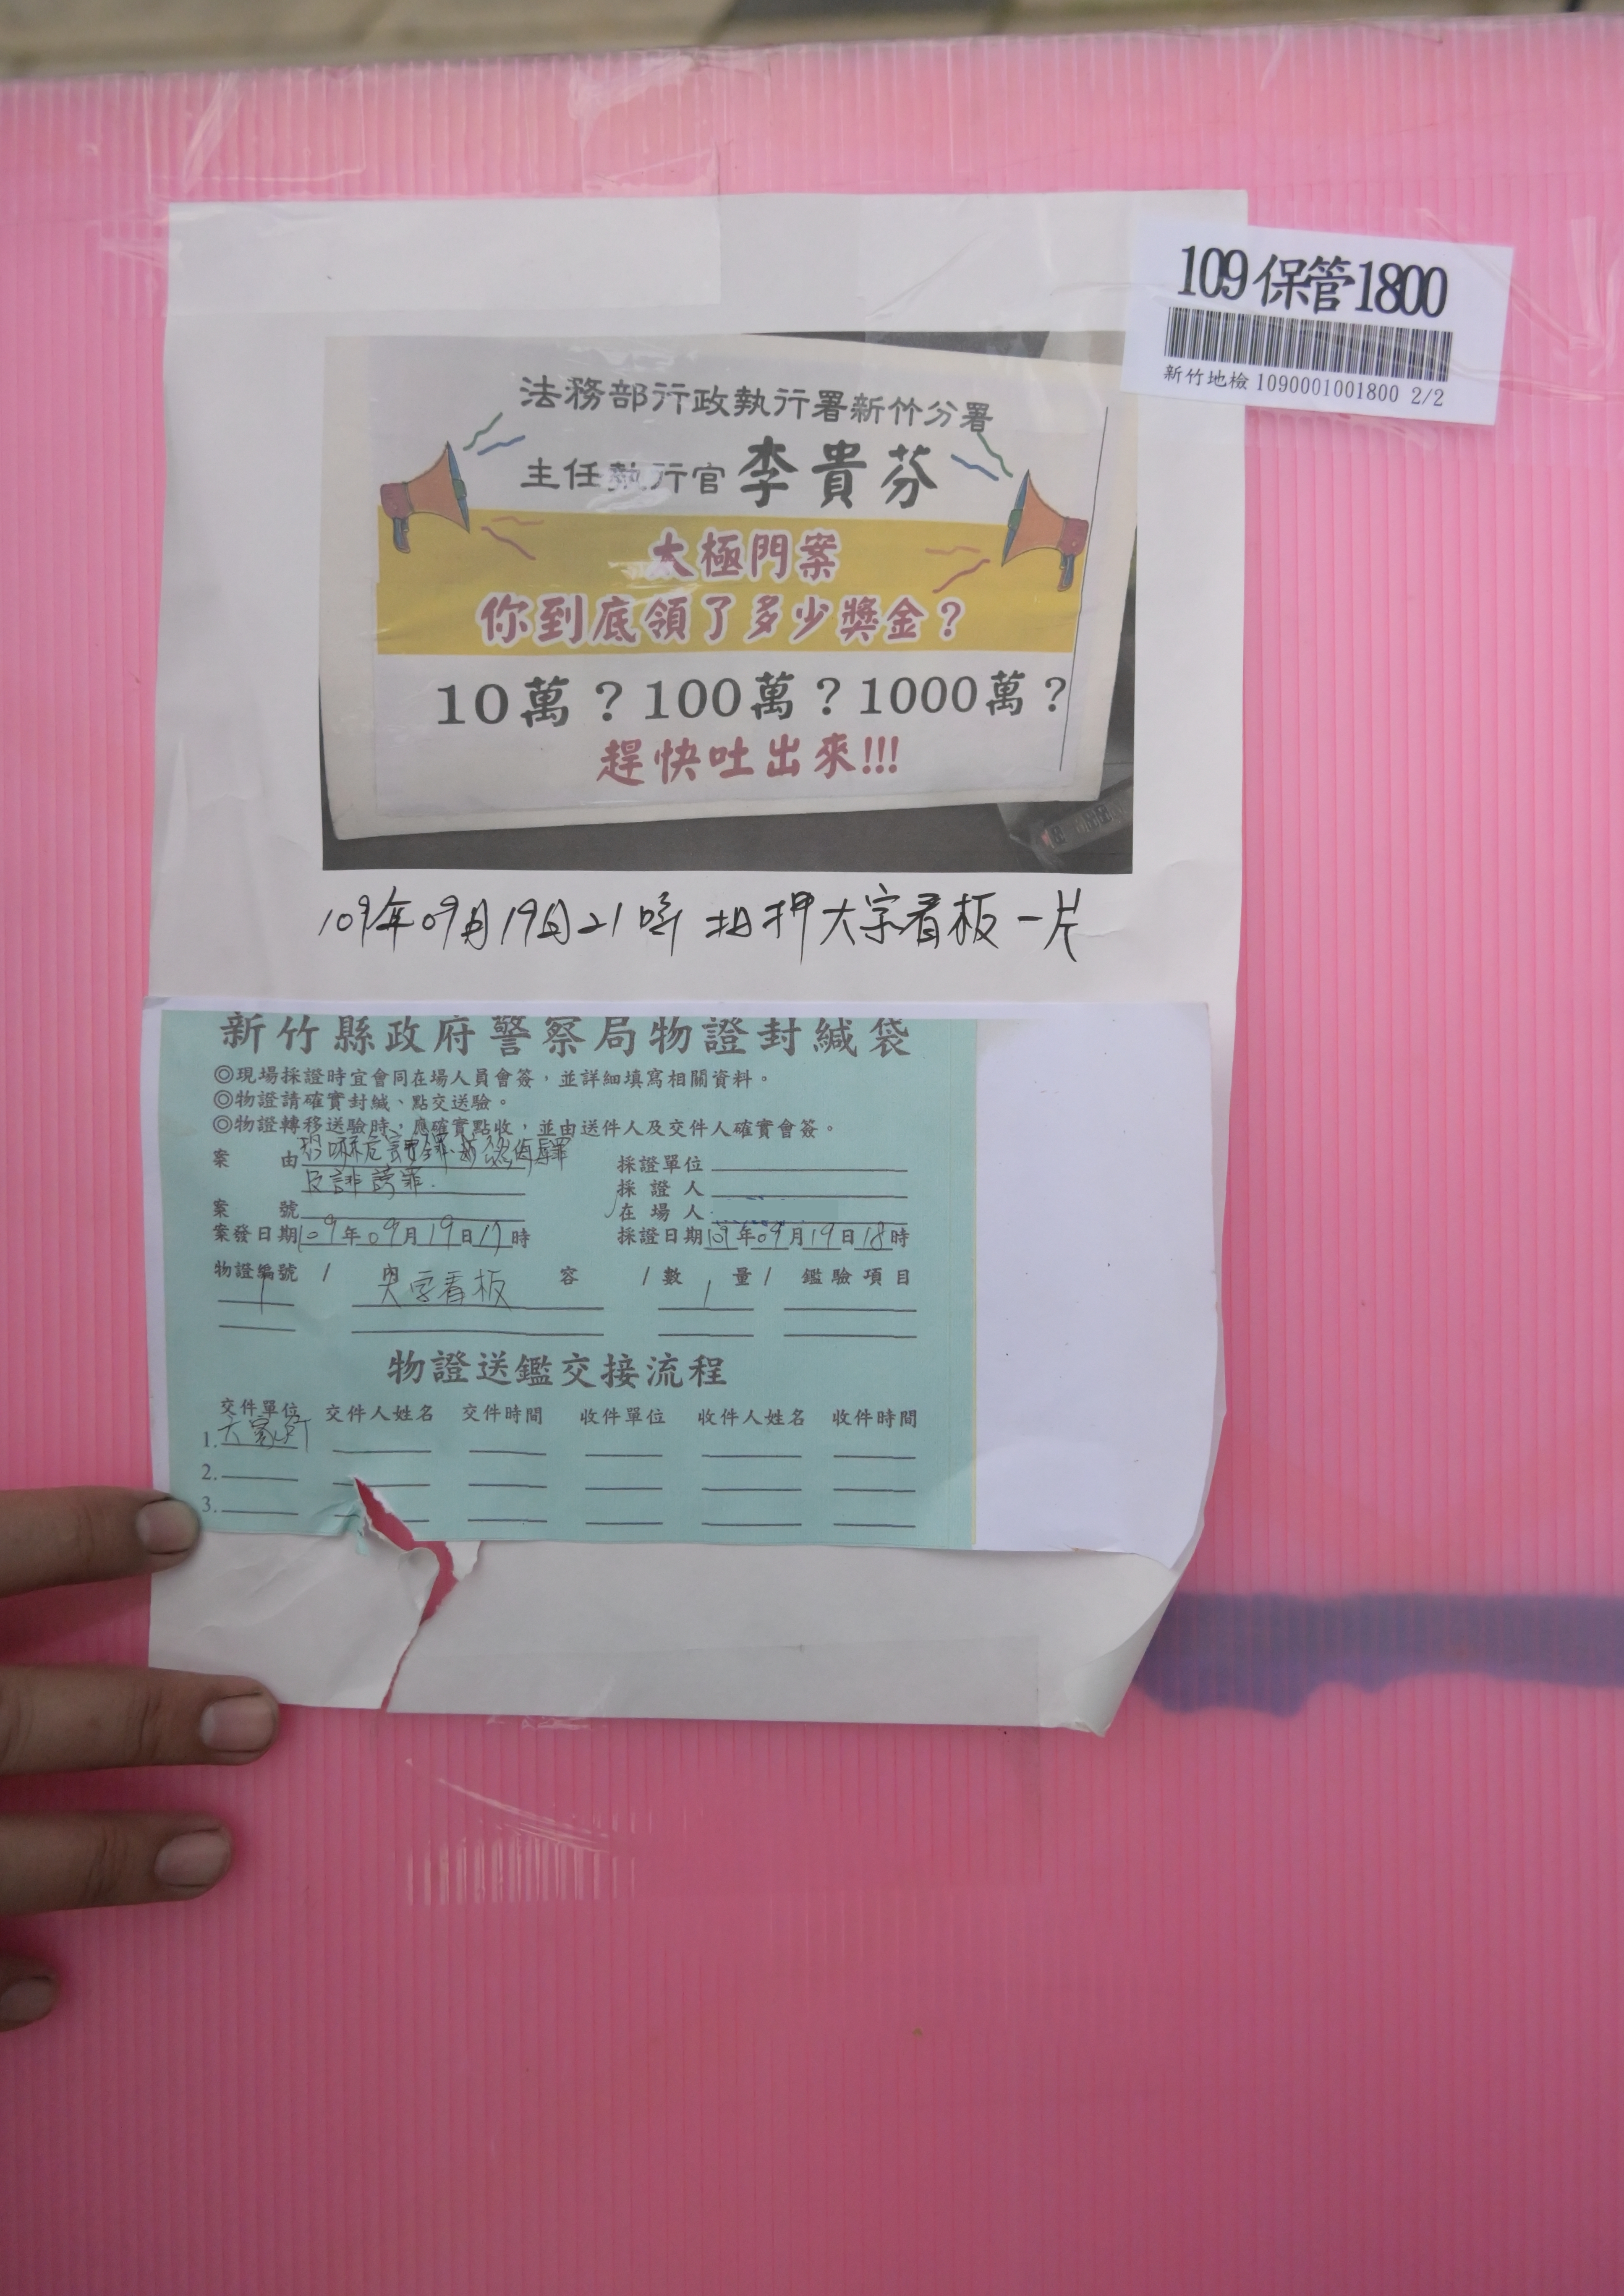 109保管1800
新竹地檢 1090001001800 2/2
法務部行政執行署新竹分署
主任執行官 李貴芬
太極門案
你到底領了多少獎金？
10萬？100萬？1000萬？
趕快吐出來!!!
109年09月19日21時 扣押大字看板一片
新竹縣政府警察局物證封緘袋
◎現場採證時宜會同在場人員會簽，並詳細填寫相關資料。
◎物證請確實封緘、點交送驗。
◎物證轉移送驗時，應確實點收，並由送件人及交件人確實會簽。
案由 恐嚇危害 採證單位
及誹謗罪. 採證人
案號 在場人
案發日期109年09月19日17時 採證日期109年09月19日18時
物證編號 / 內容 / 數量 / 鑑驗項目
1 大字看板 1
物證送鑑交接流程
交件單位 交件人姓名 交件時間 收件單位 收件人姓名 收件時間
1. 六家所
2.
3.